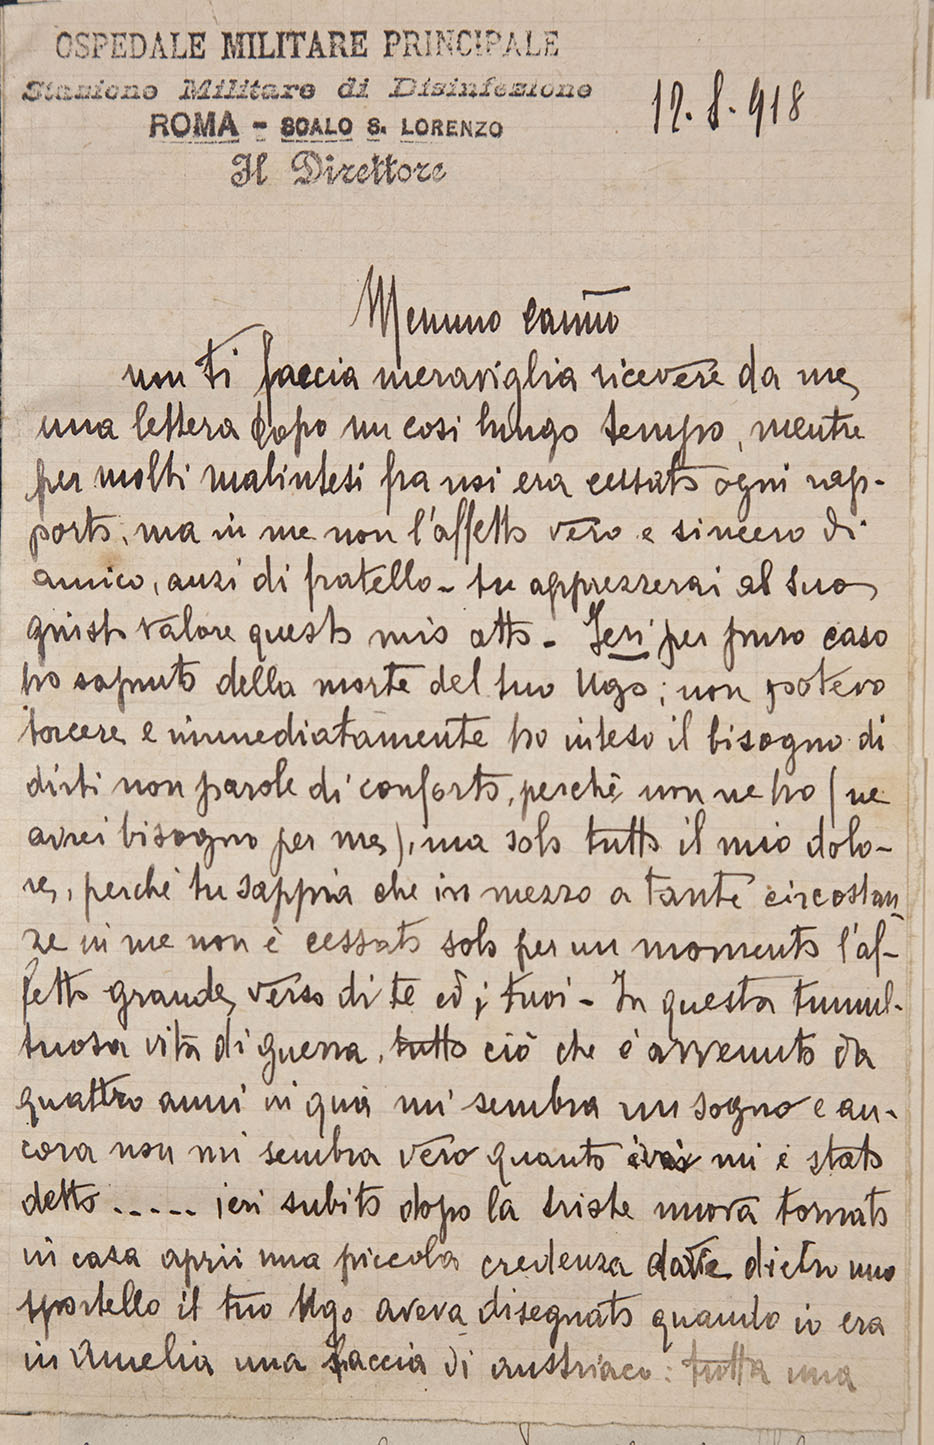 OSPEDALE MILITARE PRINCIPALE
Stazione Militare di Disinfezione
ROMA - SCALO S. LORENZO
Il Direttore
12.8.918
Memmo carmo
non ti faccia meraviglia ricevere da me
una lettera dopo un cosi lungo tempo, mentre
per molti malintesi fra noi era cessato ogni rap-
porto, ma in me non l'affetto vero e sincero di
amico, anzi di fratello - tu apprezzerai al suo
giusto valore questo mio atto - Ieri per puro caso
ho saputo della morte del tuo Ugo; non potevo
tacere e immediatamente ho inteso il bisogno di
dirti non parole di conforto, perchè non ne ho (ne
avrei bisogno per me), ma solo tutto il mio dolo-
re, perchè tu sappia che in mezzo a tante circostan-
ze in me non è cessato solo per un momento l'af-
fetto grande verso di te ed i tuoi - In questa tumul-
tuosa vita di guerra, tutto ciò che è avvenuto da
quattro anni in quà mi sembra un sogno e an-
cora non mi sembra vero quanto mi è stato
detto..... ieri subito dopo la triste nuova tornato
in casa aprii una piccola credenza dove dietro uno
sportello il tuo Ugo aveva disegnato quando io era
in Amelia una faccia di austriaco: tutta una